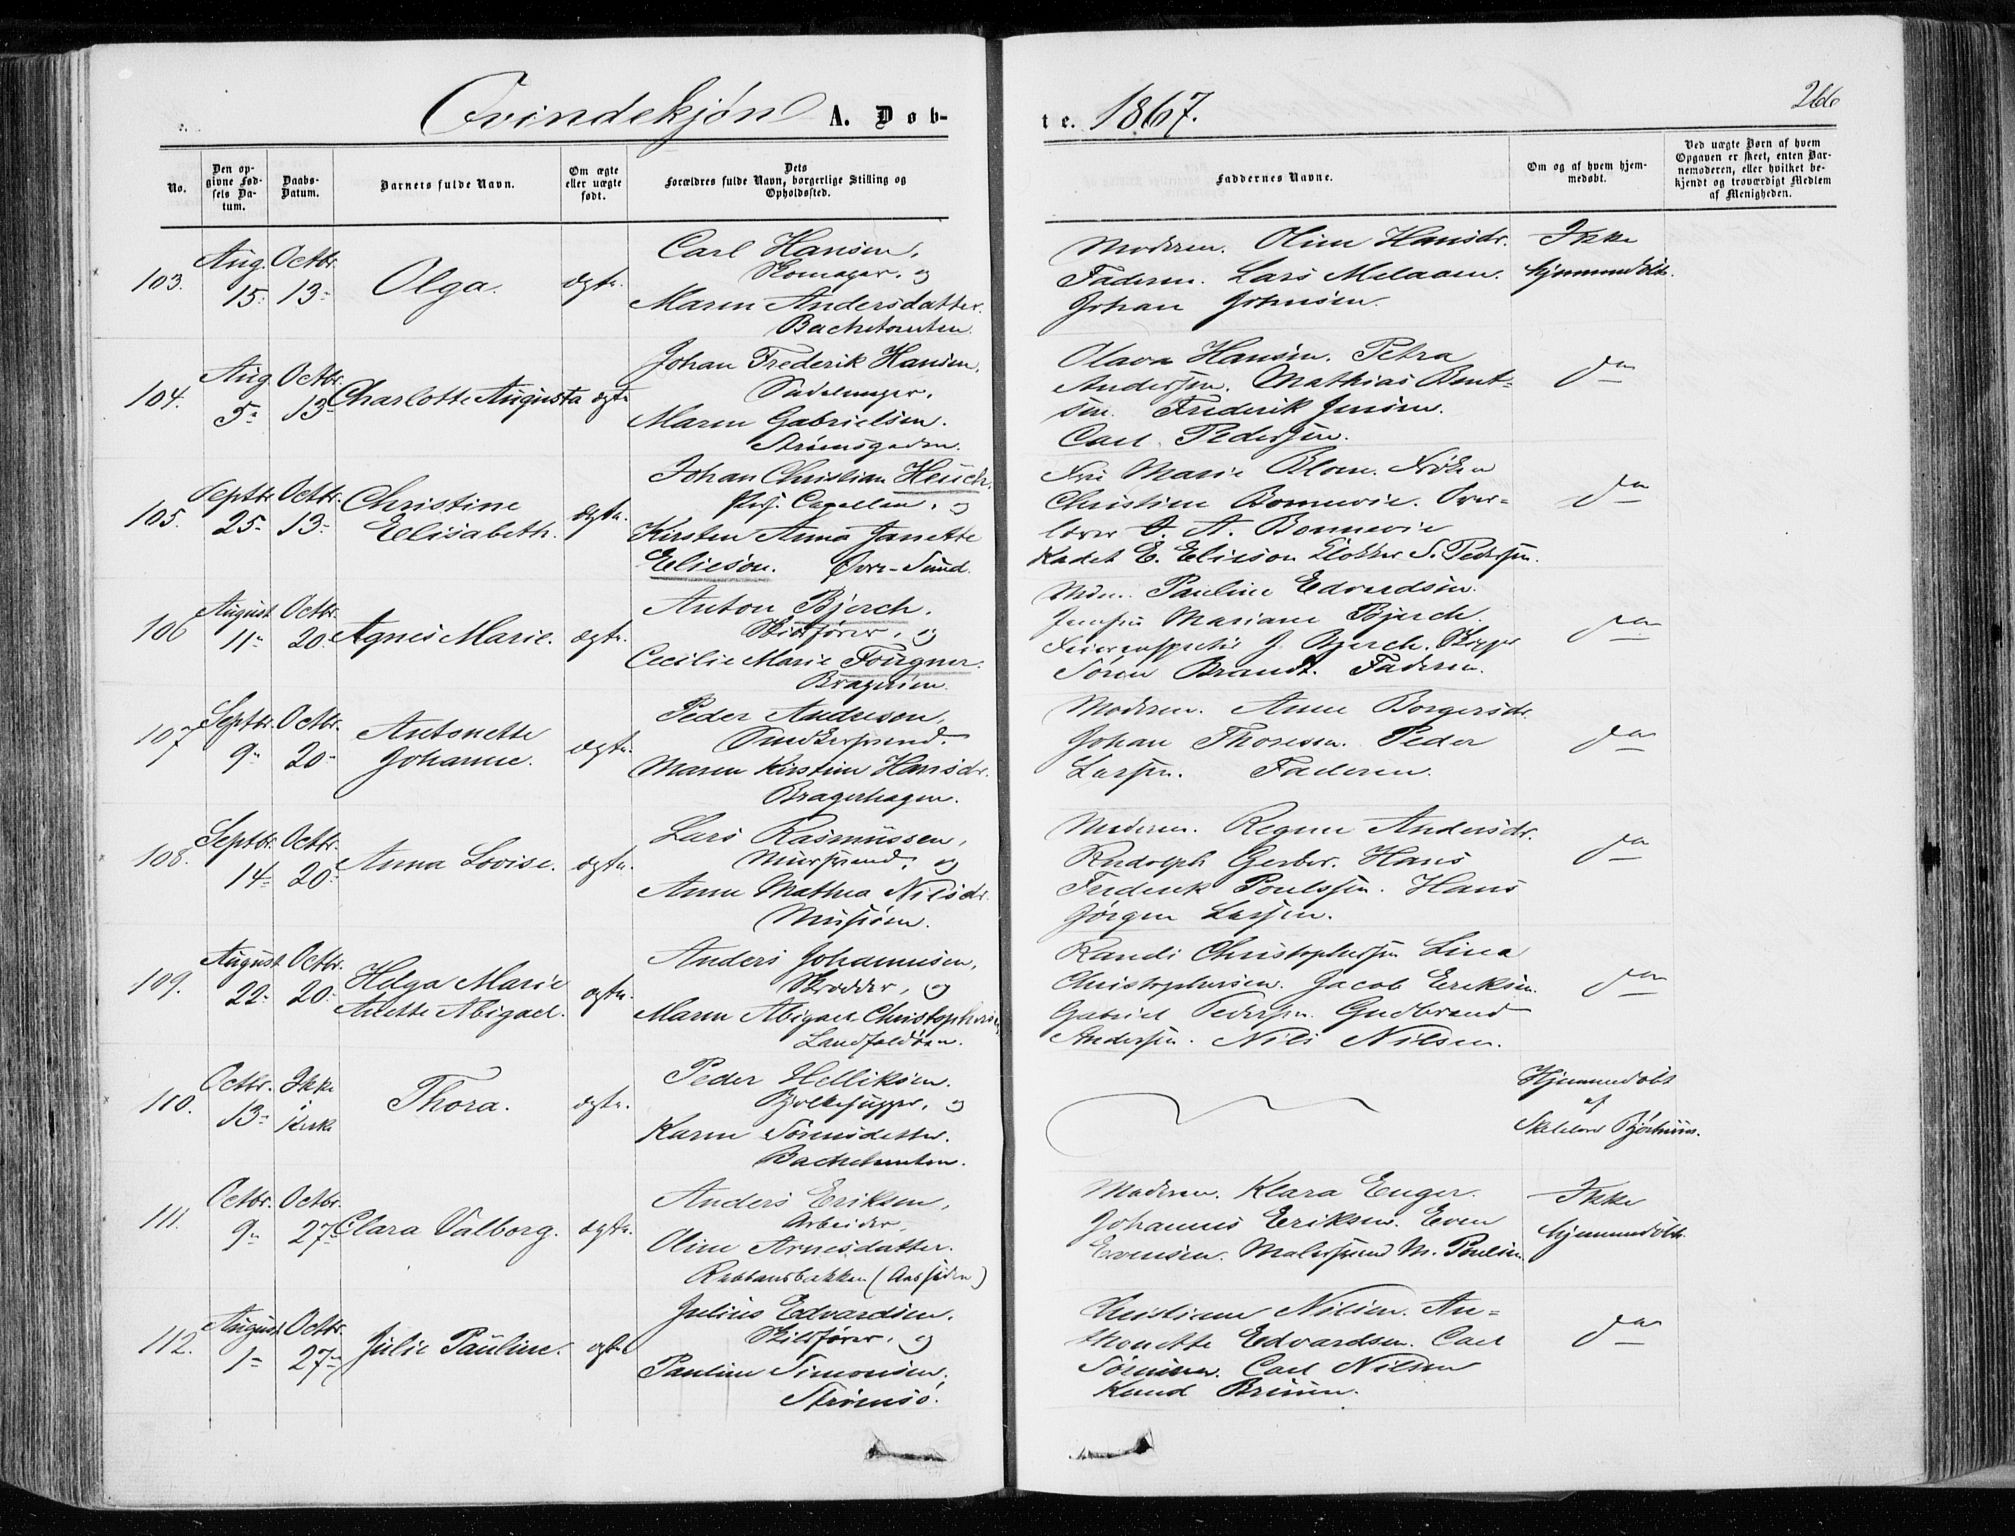 Qvindekjøn A. Døb-
te. 1867.
266
No.
Den op-
givne Fød-
sels Da-
tum.
Daabs-
Datum.
Barnets fulde Navn.
Om ægte
eller uægte
født.
Dets
Forældres fulde Navn, borgerlige Stilling og
Opholdssted.
Faddernes Navne.
Om og af hvem hjem-
medøbt.
Ved uægte Børn af hvem
Opgaven er skeet, enten Bar-
nemoderen, eller hvilket be-
kjendt og troværdigt Medlem
af Menigheden.
103.
Aug. 15.
Octbr. 13.
Olga.
ægte.
Carl Hansen,
Skomager, og
Maren Andersdatter.
Bachetomten
Moderen. Oline Hansdr.
Faderen. Lars Melaaen.
Johan Johnsen.
Ikke
hjemmedøbt.
104.
Aug. 5
Octbr. 13
Charlotte Augusta
ægte
Johan Frederik Hansen,
Sadelmager,
Maren Gabrielsen.
Strømsgaden.
Olava Hansen. Petra
Andersen. Mathias Bent-
sen. Frederik Jensen.
Carl Pedersen.
do
105.
Septbr. 25
Octbr. 13
Christine
Elisabeth.
ægte.
Johan Christian Heuch.
Pers. Capellan, og
Kirsten Anna Janette
Elieson. Øvre-Sund.
Marie Blom. Frøken
Christine Bonnevie. Over-
lærer J. A. Bonnevie
Kadet E. Elieson Klokker S. Pedersen.
do
106
August 11
Octbr. 20
Agnes Marie.
ægte.
Anton Bjerch,
Skibsfører, og
Cecilie Marie Fougner.
Bragernæs.
Pauline Edvardsen.
Mariane Bjerch.
G. Bjerch. Skipper
Søren Brandt. Faderen.
do
107
Septbr. 9
Octbr. 20
Antonette
Johanne.
ægte.
Peder Andersen,
Snedkersvend.
Maren Kirstine Hansdr.
Bragerhagen.
Moderen. Anne Borgersdr.
Johan Thoresen. Peder
Larsen. Faderen.
do
108.
Septbr. 14
Octbr. 20
Anna Lovise.
ægte.
Lars Rasmussen,
Mursvend, og
Anne Mathea Nilsdr.
Moderen. Regine Andersdr.
Rudolph Gerber. Hans
Frederik Poulssen. Hans
Jørgen Larsen.
do
109.
August 22
Octbr. 20
Helga Marie
Anette Abigael.
ægte.
Anders Johannesen,
Skrædder, og
Maren Abigael Christophersen
Landfaldøen.
Randi Christophersen Lina
Christophersen. Jacob Eriksen.
Gabriel Pedersen. Gudbrand
Andersen. Nils Nilsen.
do
110.
Octbr. 13
Ikke
i
Kirke
Thora.
ægte.
Peder Helliksen.
Bjelkehugger, og
Karen Sørensdatter.
Bachetomten.
Hjemmedøbt
af
111.
Octbr. 9
Octbr. 27
Clara Valborg.
ægte.
Anders Eriksen,
Arbeider,
Oline Arnesdatter.
Rabbansbakken (Aassiden)
Moderen. Klara Enger.
Johannes Eriksen. Even
Evensen. Malersvend M. Poulsen
Ikke
hjemmedøbt.
112.
August 1
Octbr. 27
Julie Pauline.
ægte
Julius Edvardsen.
Skibsfører, og
Pauline Simonsen.
Strømsø.
Christiane Nilsen. An-
thonette Edvardsen. Carl
Carl Nilsen
Knud
do